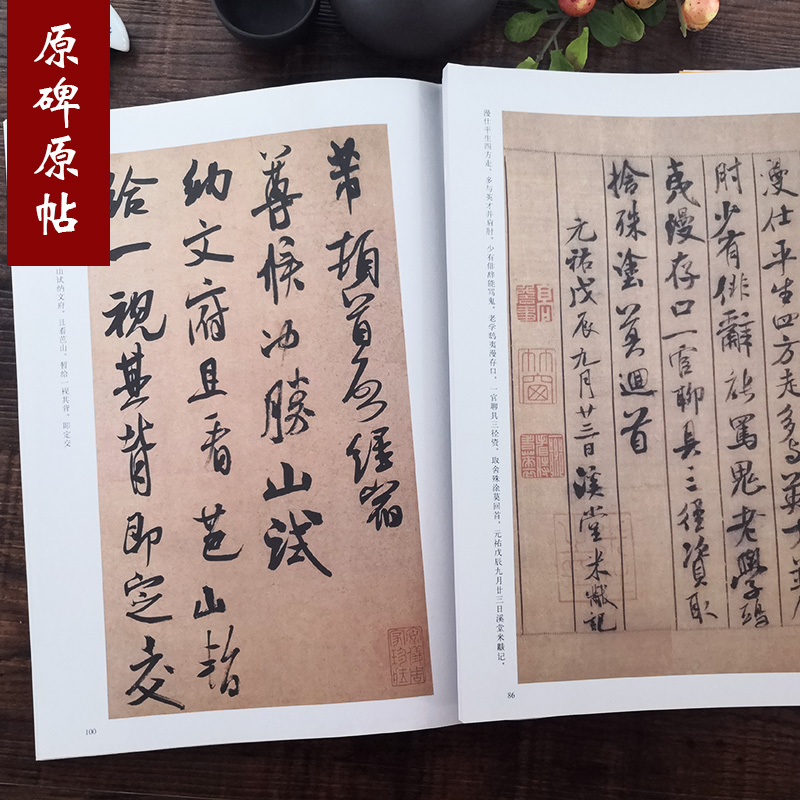 原碑原帖
芾顿首启经宿
尊候冲勝山試
納文府且看芭山暫
給一視其背即定交
山试纳文府，且看芭山，暂给一视其背，即定交
100
漫仕平生四方走多与英才并肩
肘少有俳辭能罵鬼老學鴟
夷漫存口一官聊具三徑資取
捨殊塗莫迴首
元祐戊辰九月廿三日溪堂米黻記
漫仕平生四方走，多与英才并肩肘，少有俳辞能骂鬼，老学鸱夷漫存口，一官聊具三径资，取舍殊涂莫回首，元祐戊辰九月廿三日溪堂米黻记，
86